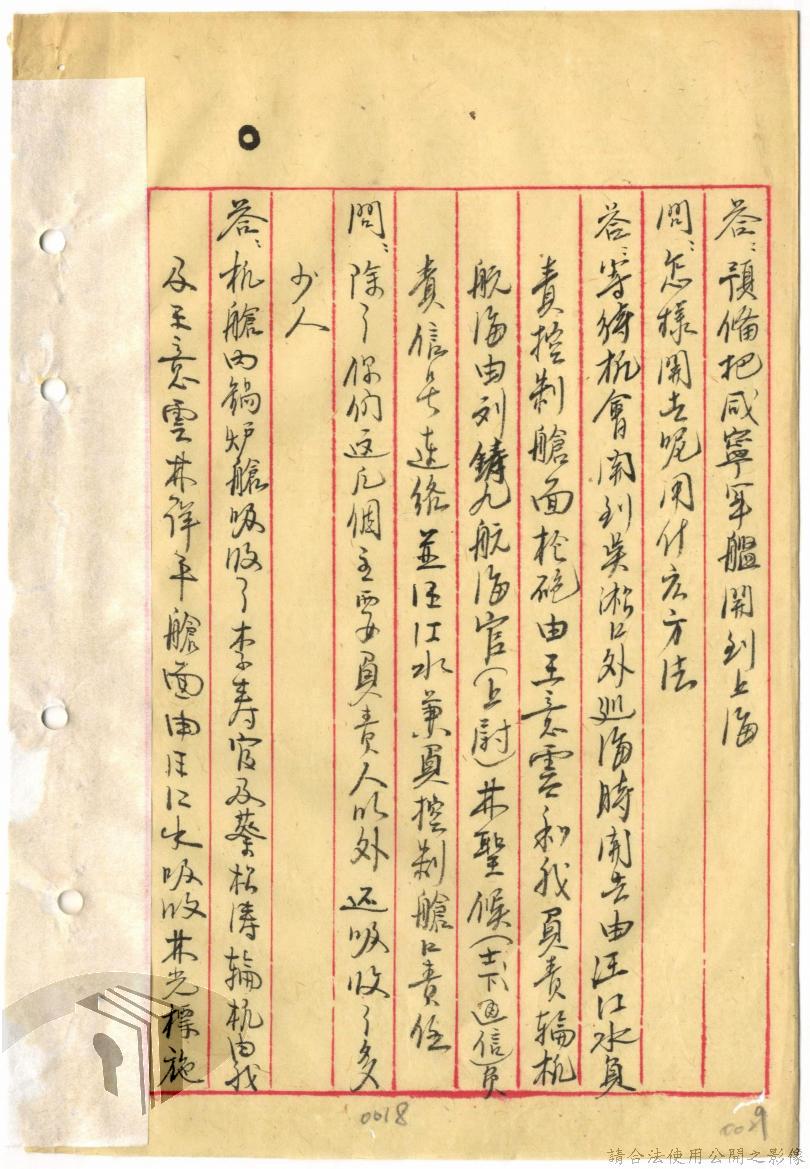 答:預備把咸寧軍艦開到上海
問:怎樣開去呢用什么方法
答:等待机會開到吳淞口外巡海時開去由汪江水負
責控制艙面枪砲由王意雲和我負責輪机
航海由列鑄九航海官(上尉)林聖候(上士通信)負
責信号連絡並汪江水兼負控制艙口責任
問:除了你們这几個主要負責人以外还吸收了多
少人
答:机艙内鍋炉艙吸收了李寿官及蔡松涛輪机由我
及王意雲林祥平艙面由汪江水吸收林光標施
0018
0029
請合法使用公開之影像